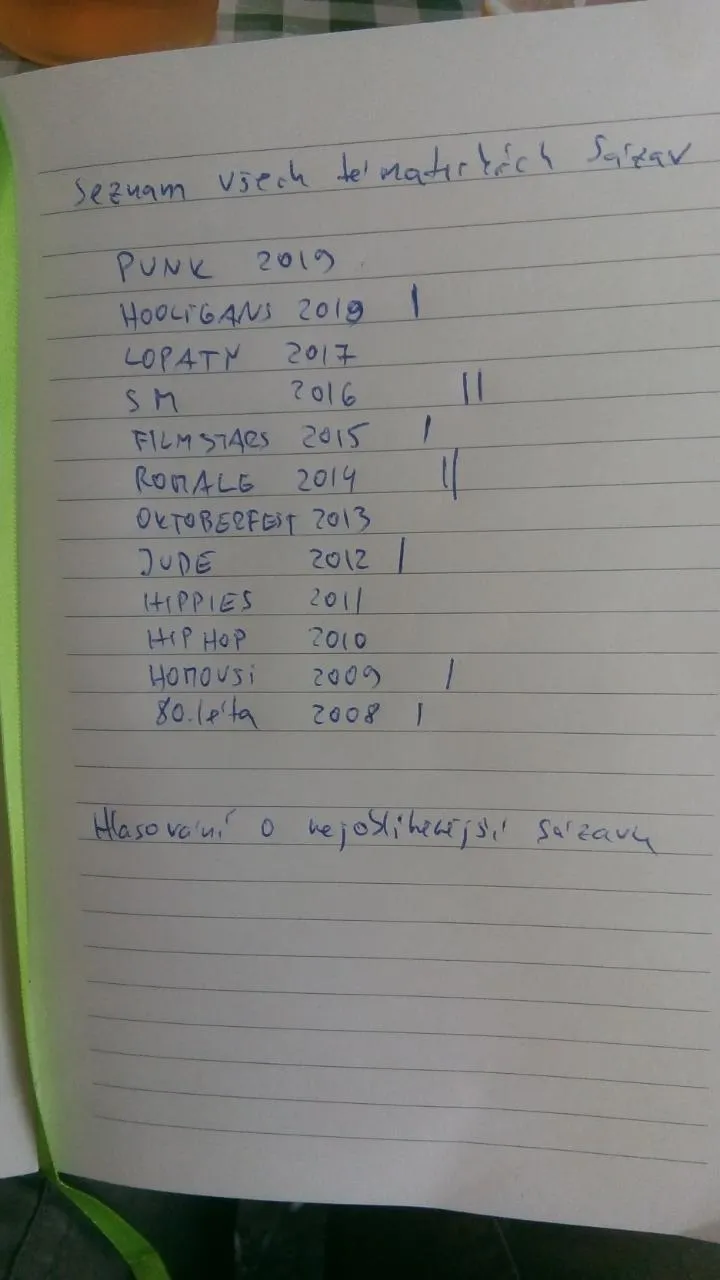 Seznam všech tématických Sázav
PUNK 2019
HOOLiGANS 2018 |
LOPATY 2017
SM 2016 ||
FILMSTARS 2015 |
ROMALE 2014 ||
OKTOBERFEST 2013
JUDE 2012 |
HIPPIES 2011
HIP HOP 2010
HOMOUŠi 2009 |
80.léta 2008 |
Hlasování o nejoblíbenější Sázavu